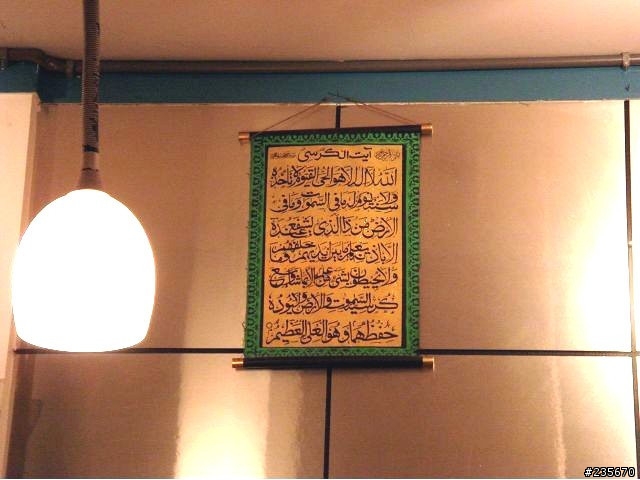 آيت الكرسي
الله لا اله الا هو الحي القيوم لا تاخذه
سنة ولا نوم له ما في السموت وما في
الارض من ذا الذي يشفع عنده
الا باذنه يعلم ما بين ايديهم وما خلفهم
ولا يحيطون بشي من علمه الا بما شاء وسع
كرسيه السموت والارض ولا يوده
حفظهما وهو العلي العظيم
#235670